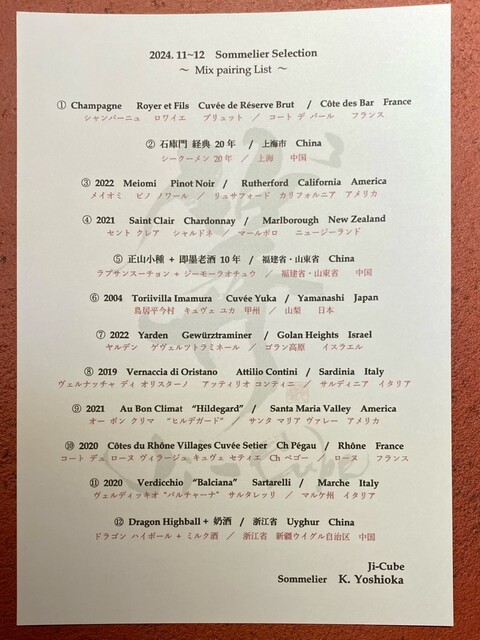 2024. 11~12 Sommelier Selection
～ Mix pairing List ～
① Champagne Royer et Fils Cuvée de Réserve Brut / Côte des Bar France
シャンパーニュ ロワイエ ブリュット ／ コート デ バール フランス
② 石庫門 経典 20 年 / 上海市 China
シークーメン 20 年 ／ 上海 中国
③ 2022 Meiomi Pinot Noir / Rutherford California America
メイオミ ピノ ノワール ／ リュサフォード カリフォルニア アメリカ
④ 2021 Saint Clair Chardonnay / Marlborough New Zealand
セント クレア シャルドネ ／ マールボロ ニュージーランド
⑤ 正山小種 + 即墨老酒 10 年 / 福建省・山東省 China
ラプサンスーチョン + ジーモーラオチュウ ／ 福建省・山東省 中国
⑥ 2004 Toriivilla Imamura Cuvée Yuka / Yamanashi Japan
鳥居平今村 キュヴェ ユカ 甲州 ／ 山梨 日本
⑦ 2022 Yarden Gewürztraminer / Golan Heights Israel
ヤルデン ゲヴェルツトラミネール ／ ゴラン高原 イスラエル
⑧ 2019 Vernaccia di Oristano Attilio Contini / Sardinia Italy
ヴェルナッチャ ディ オリスターノ アッティリオ コンティニ ／ サルディニア イタリア
⑨ 2021 Au Bon Climat “Hildegard” / Santa Maria Valley America
オー ボン クリマ “ヒルデガード” ／ サンタ マリア ヴァレー アメリカ
⑩ 2020 Côtes du Rhône Villages Cuvée Setier Ch Pégau / Rhône France
コート デュ ローヌ ヴィラージュ キュヴェ セティエ Ch ペゴー ／ ローヌ フランス
⑪ 2020 Verdicchio “Balciana” Sartarelli / Marche Italy
ヴェルディッキオ “バルチャーナ” サルタレッリ ／ マルケ州 イタリア
⑫ Dragon Highball + 奶酒 / 浙江省 Uyghur China
ドラゴン ハイボール + ミルク酒 ／ 浙江省 新疆ウイグル自治区 中国
Ji-Cube
Sommelier K. Yoshioka